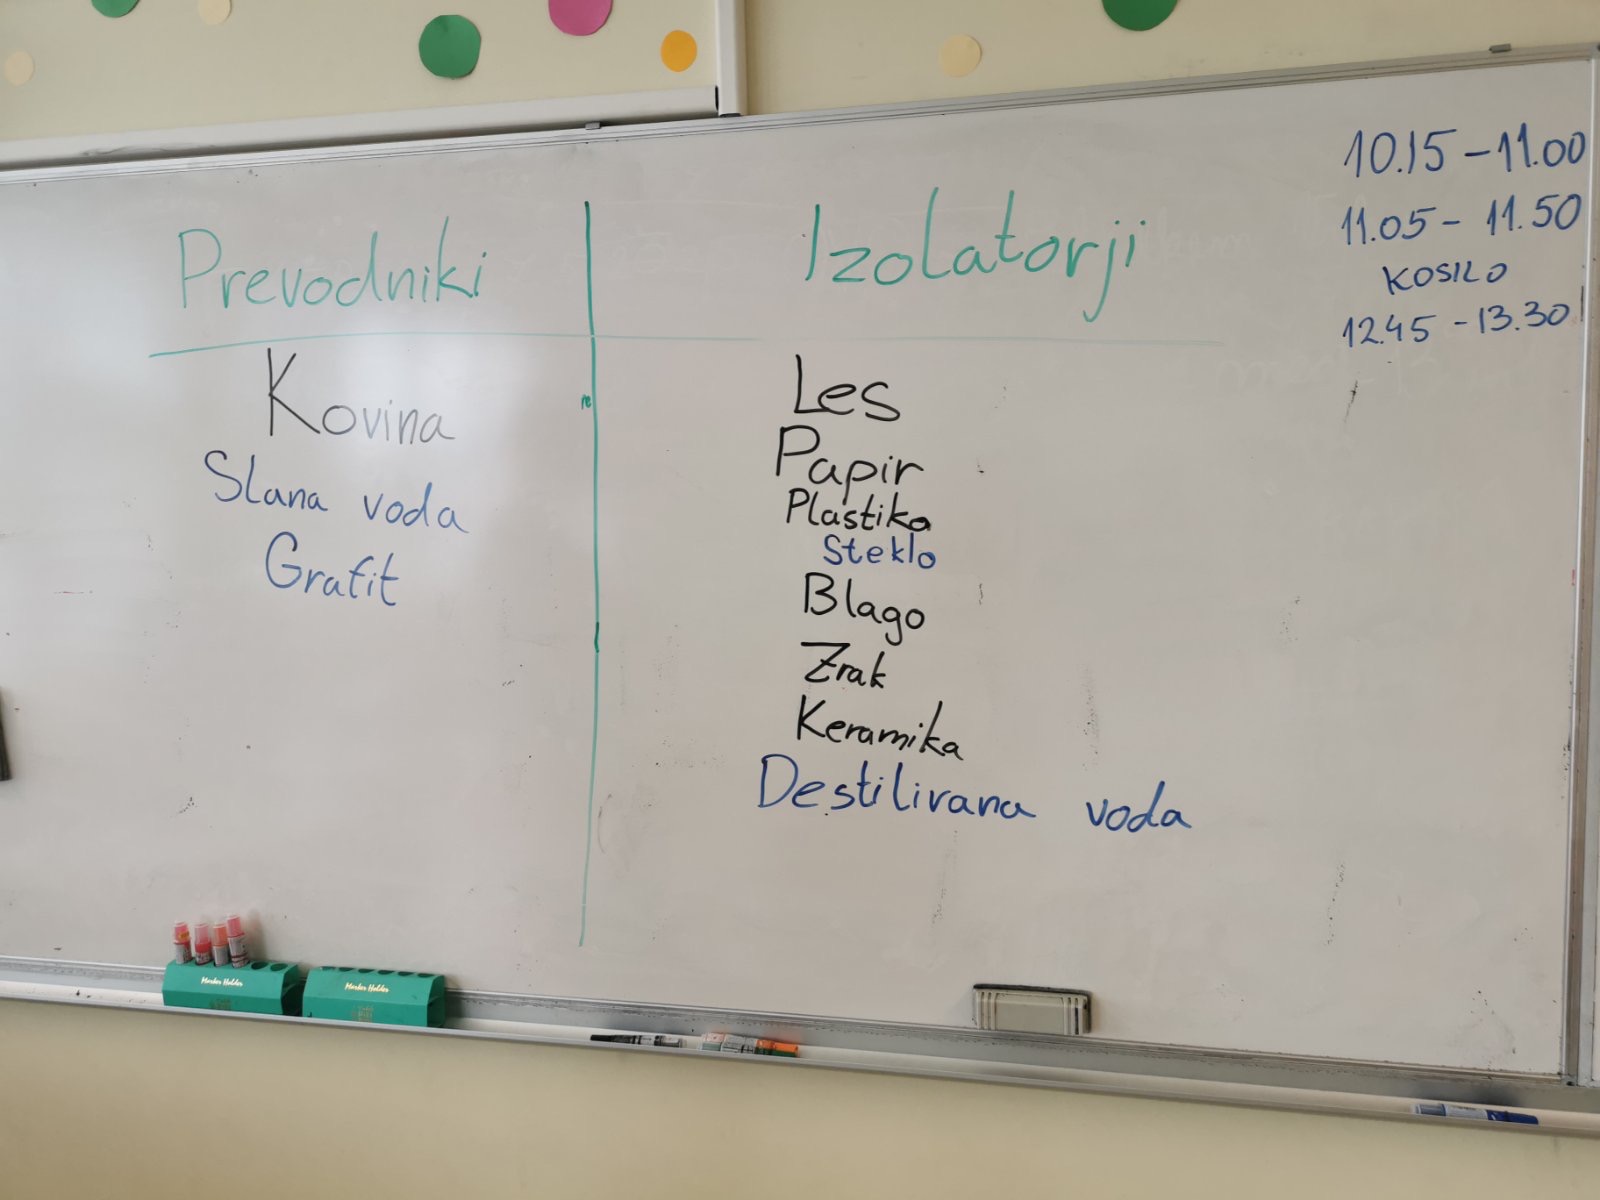 Prevodniki
Kovina
Slana voda
Grafit
Izolatorji
Les
Papir
Plastika
Steklo
Blago
Zrak
Keramika
Destilirana voda
10.15 - 11.00
11.05 - 11.50
KOSILO
12.45 - 13.30
Marker Holder
Marker Holder